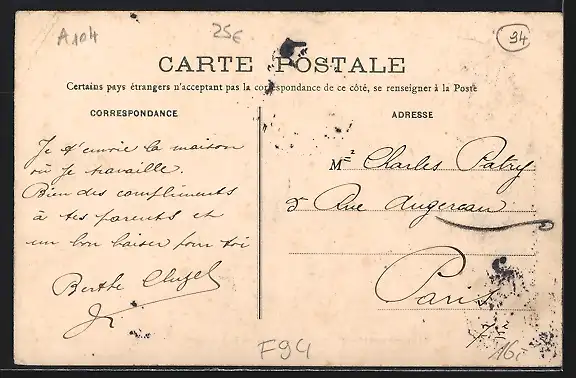 A104
25€
94
CARTE POSTALE
Certains pays étrangers n'acceptant pas la correspondance de ce côté, se renseigner à la Poste
CORRESPONDANCE
Je t'envoie la maison
où je travaille.
Bien des compliments
à tes parents et
un bon baiser pour toi
Berthe
ADRESSE
M Charles Patry
5 Rue Augereau
Paris
F94
16